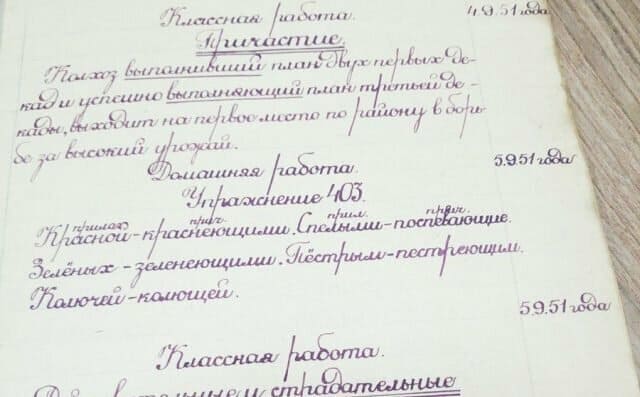 Классная работа. 4.9.51 года
Причастие.
Колхоз выполнивший план двух первых де-
кад и успешно выполняющий план третьей де-
кады, выходит на первое место по району в борь-
бе за высокий урожай.
Домашняя работа. 5.9.51 года
Упражнение 403.
прилаг. прич. прил. прич.
Красной-краснеющими. Спелыми-поспевающие.
Зелёных-зеленеющими. Пёстрым-пестреющим.
Колючей-колющей.
5.9.51 года
Классная работа.
и страдательные